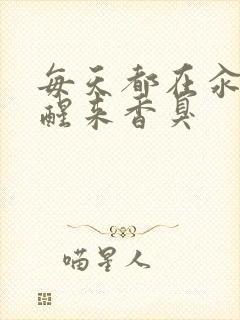 每天都在汆
醒来香臭
喵星人